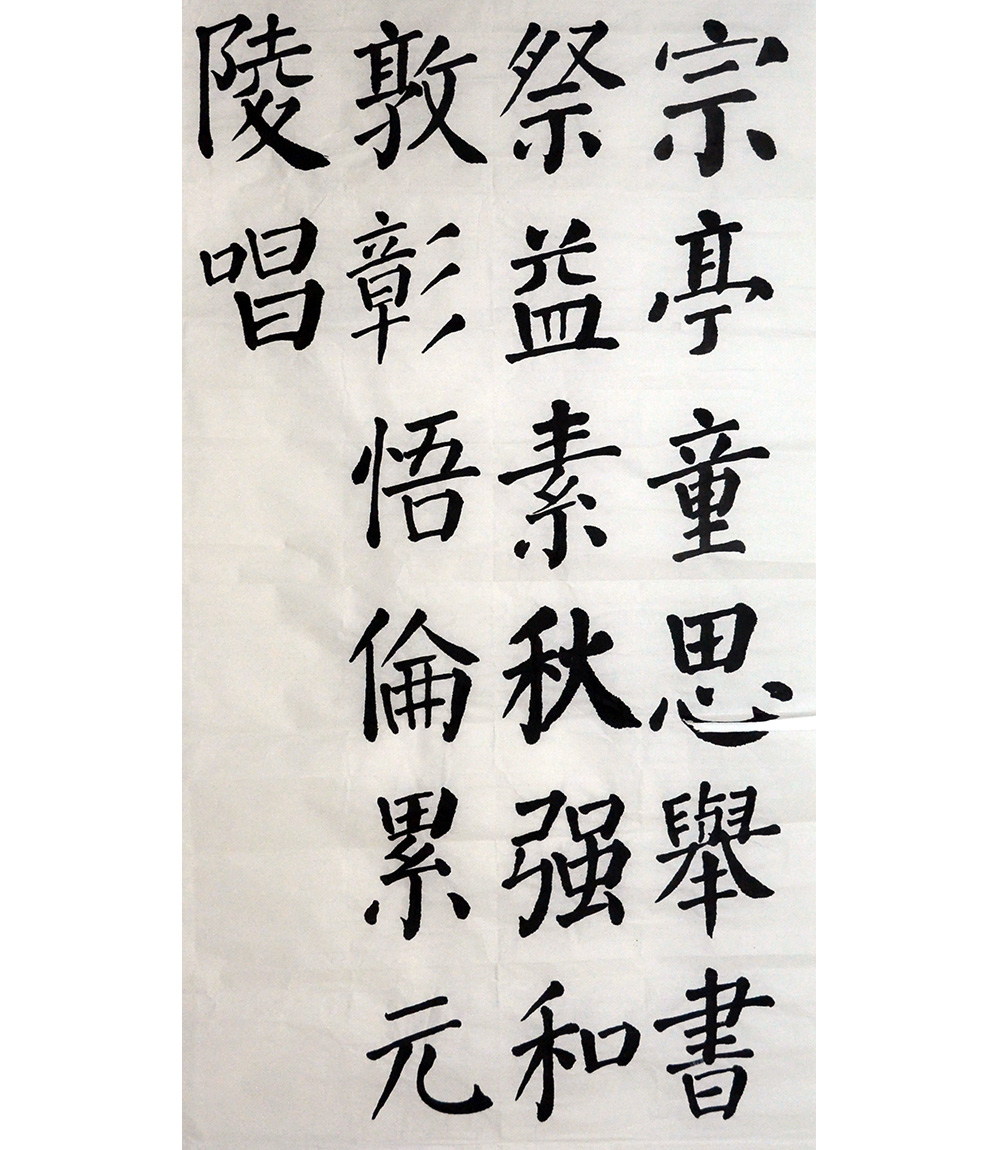 宗亭童思舉書
祭益素秋强和
敦彰悟倫累元
陵唱